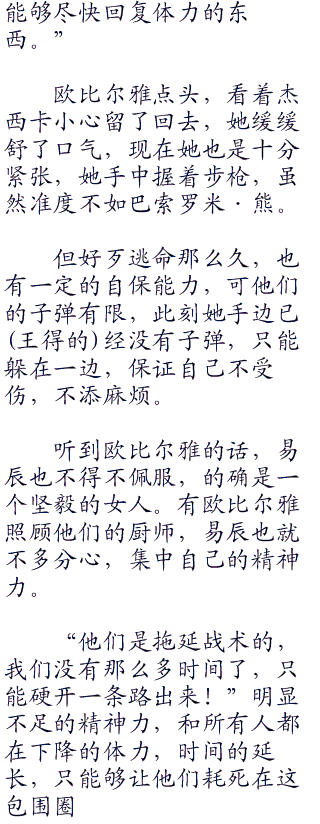 能够尽快回复体力的东
西。”
欧比尔雅点头，看着杰
西卡小心留了回去，她缓缓
舒了口气，现在她也是十分
紧张，她手中握着步枪，虽
然准度不如巴索罗米·熊。
但好歹逃命那么久，也
有一定的自保能力，可他们
的子弹有限，此刻她手边已
(王得的)经没有子弹，只能
躲在一边，保证自己不受
伤，不添麻烦。
听到欧比尔雅的话，易
辰也不得不佩服，的确是一
个坚毅的女人。有欧比尔雅
照顾他们的厨师，易辰也就
不多分心，集中自己的精神
力。
“他们是拖延战术的，
我们没有那么多时间了，只
能硬开一条路出来！”明显
不足的精神力，和所有人都
在下降的体力，时间的延
长，只能够让他们耗死在这
包围圈